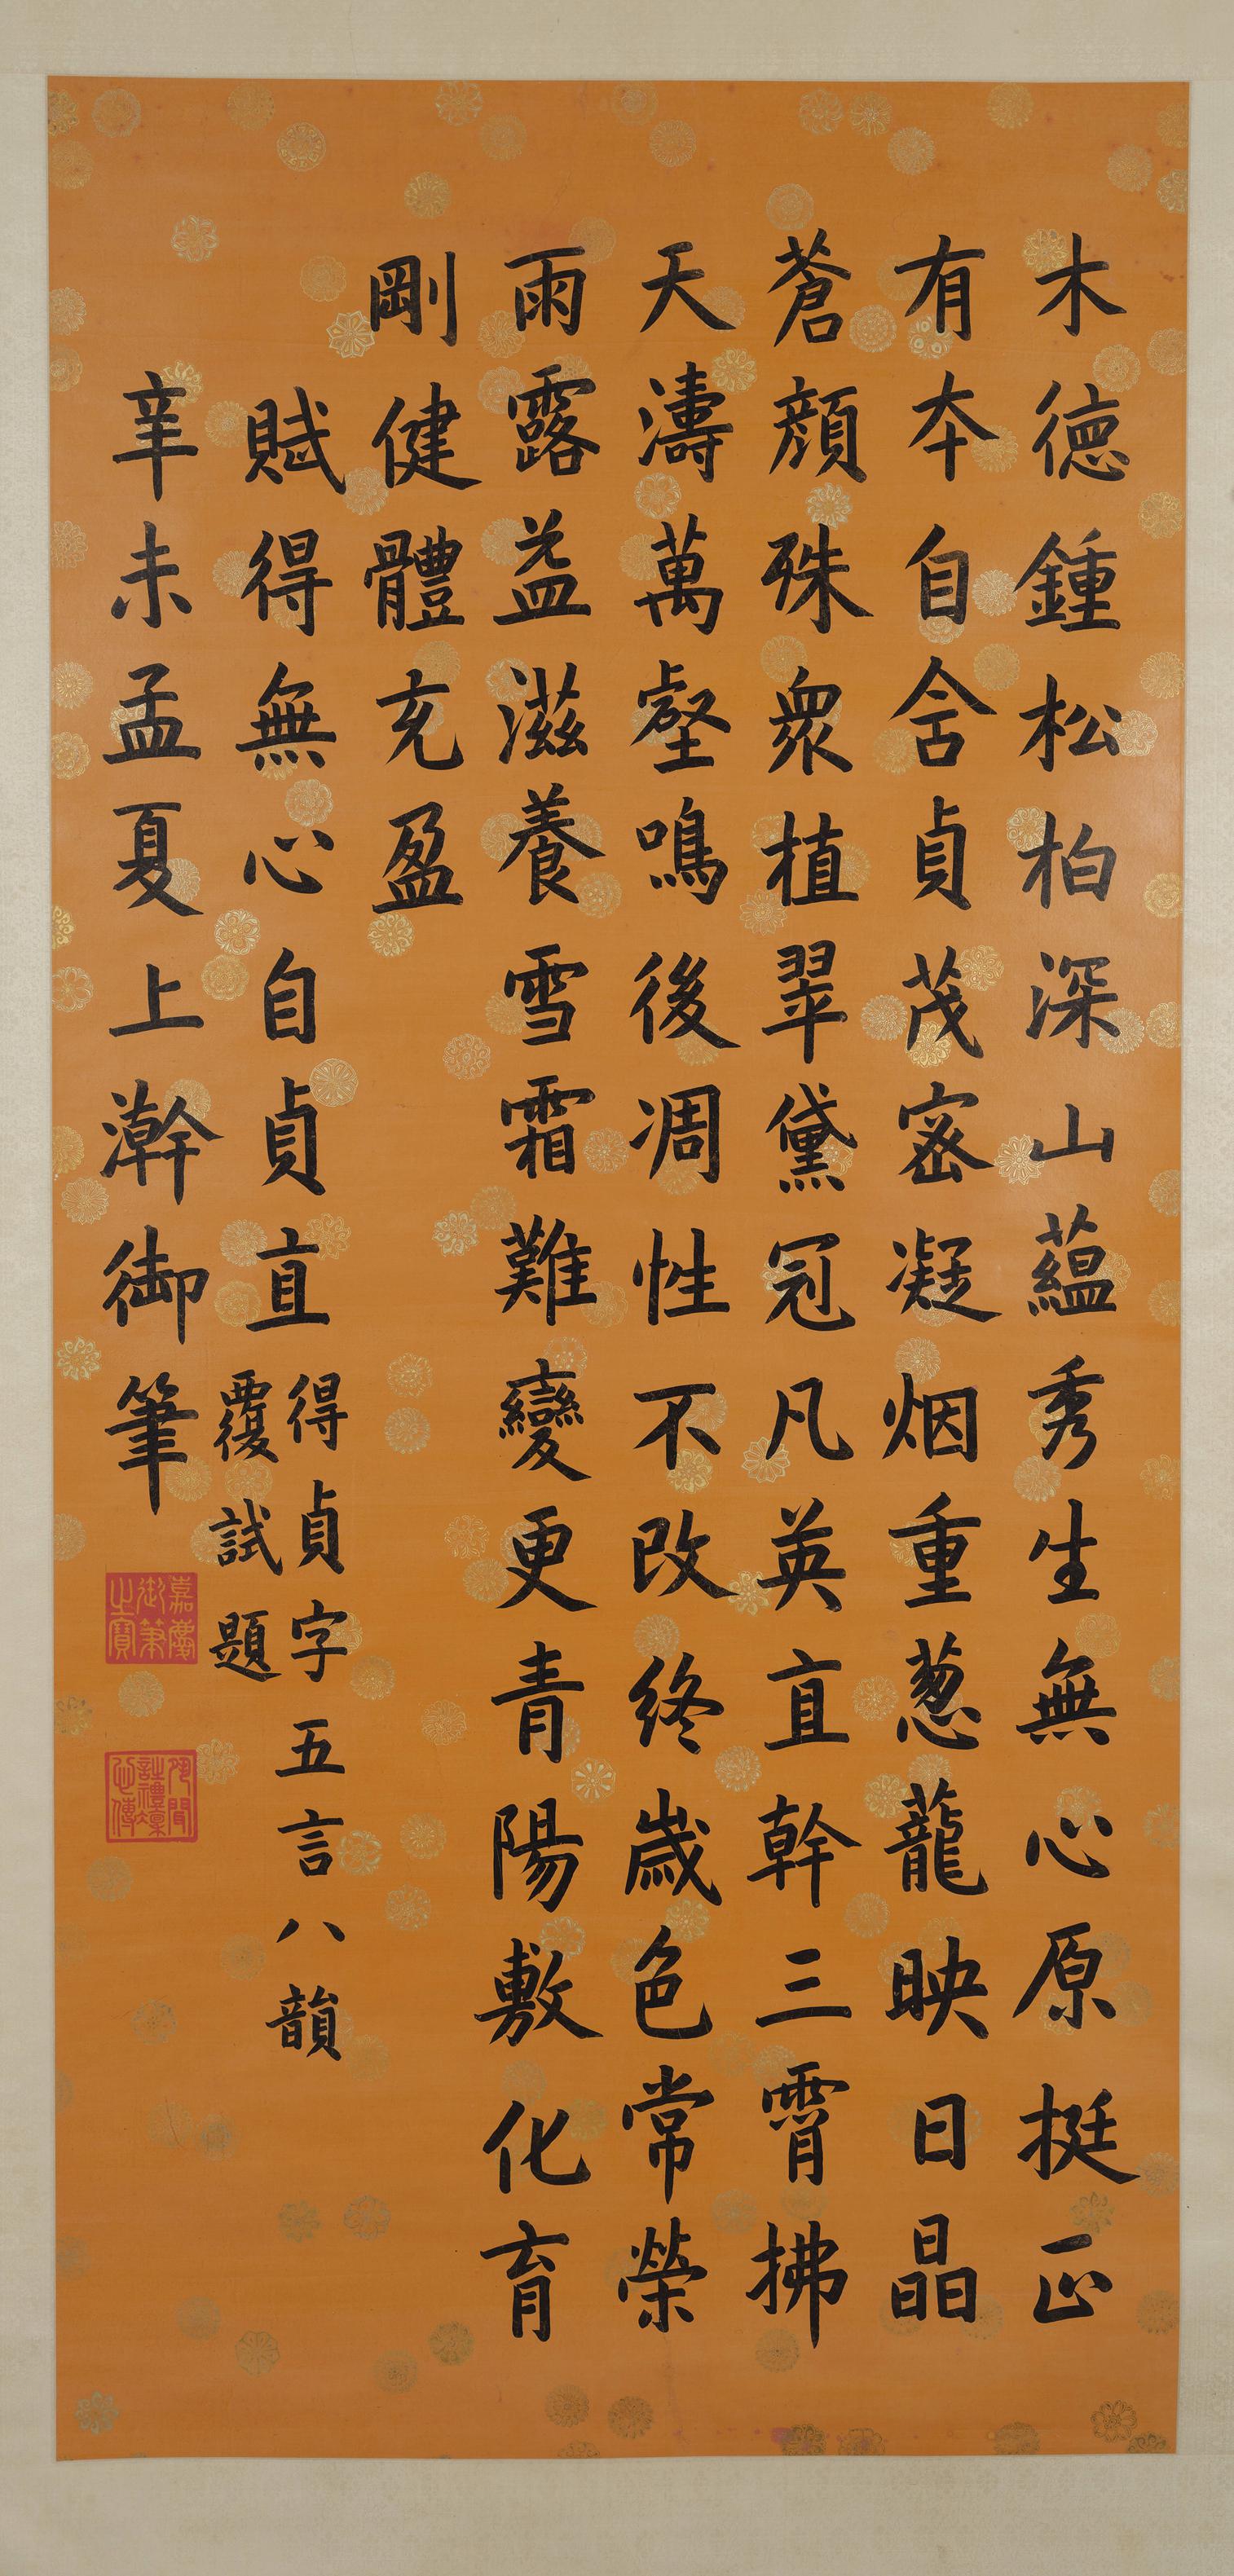 木德鍾松柏深山蘊秀生無心原挺正
有本自含貞茂密凝烟重葱蘢映日晶
蒼顔殊衆植翠黛冠凡英直幹三霄拂
天濤萬壑鳴後凋性不改終歲色常榮
雨露益滋養雪霜難變更青陽敷化育
剛健體充盈
賦得無心自貞直
得貞字五言八韻
覆試題
辛未孟夏上澣御筆
嘉慶
御筆
之寶